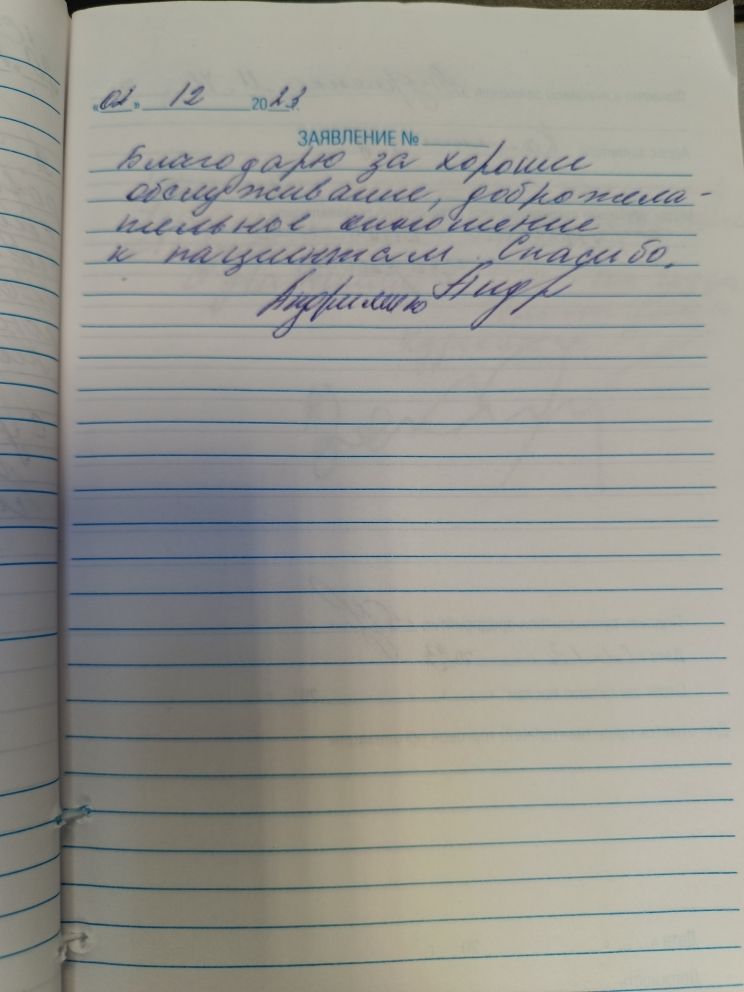 «02» 12 2023.
ЗАЯВЛЕНИЕ №
Благодарю за хорошее
обслуживание, доброжела-
тельное отношение
к пациентам. Спасибо.
Андр